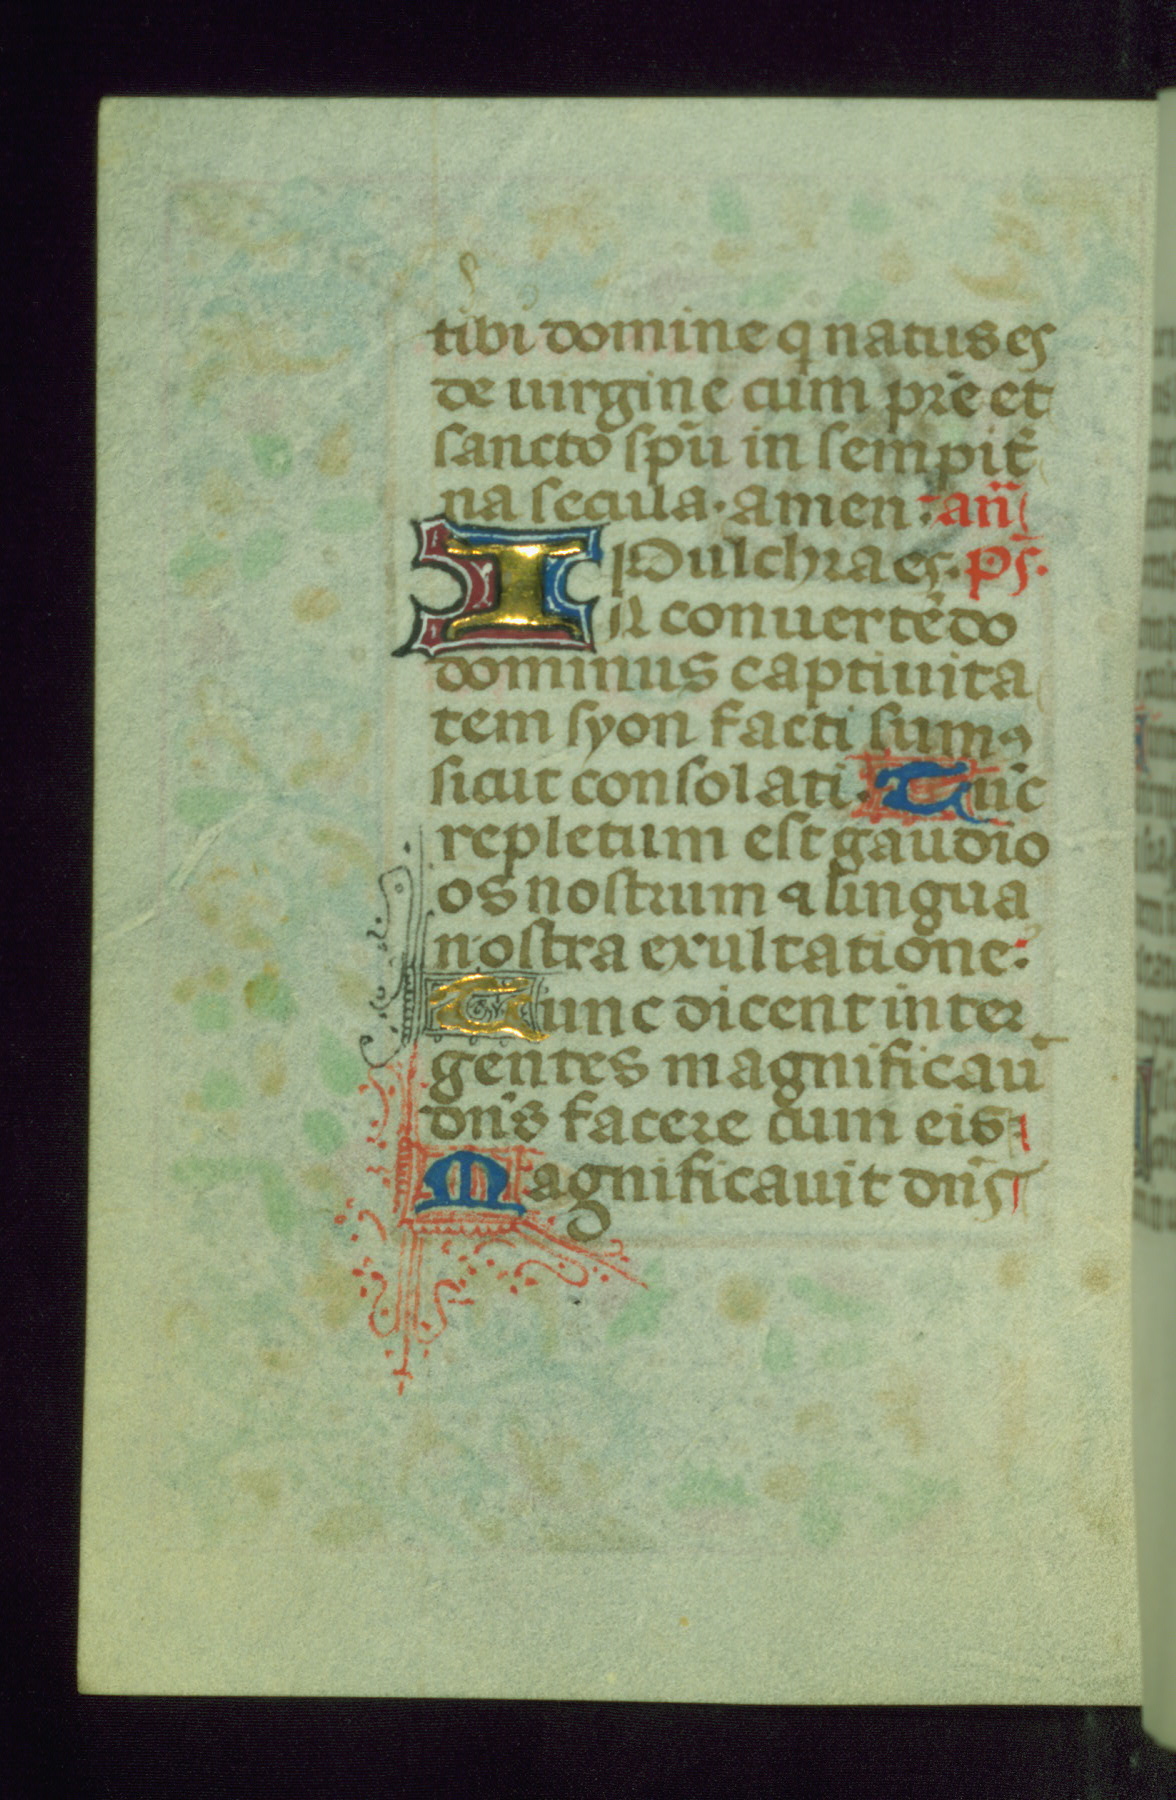 tibi domine q natus es
de uirgine cum pr̃e et
sancto sp̃u in sempit̃
na secula. amen: añ
Pulchra es. ps̃.
IN conuertẽdo
dominus captiuita
tem syon facti sumꝰ
sicut consolati. Tũc
repletum est gaudio
os nostrum ⁊ lingua
nostra exultatione:
Tunc dicent inter
gentes magnificauͭ
dñs facere cum eis:
Magnificauit dñs